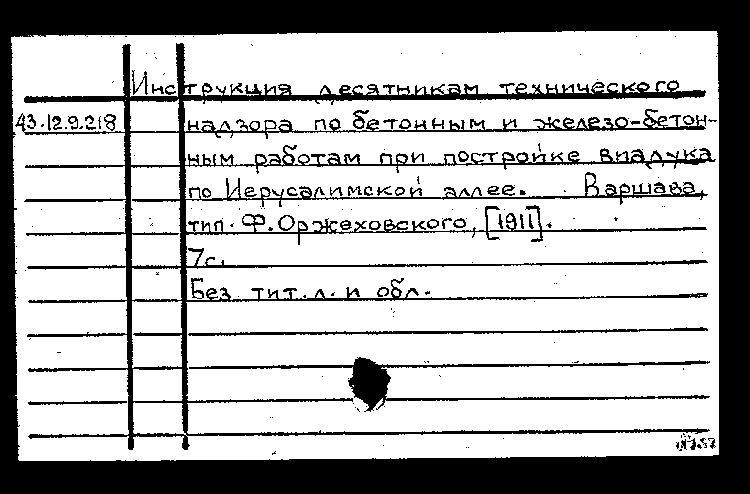 Инструкция десятникам технического
43.12.9.218 надзора по бетонным и железо-бетон-
ным работам при постройке виадука
по Иерусалимской аллее. Варшава,
тип. Ф. Оржеховского, [1911].
7с.
Без тит. л. и обл.